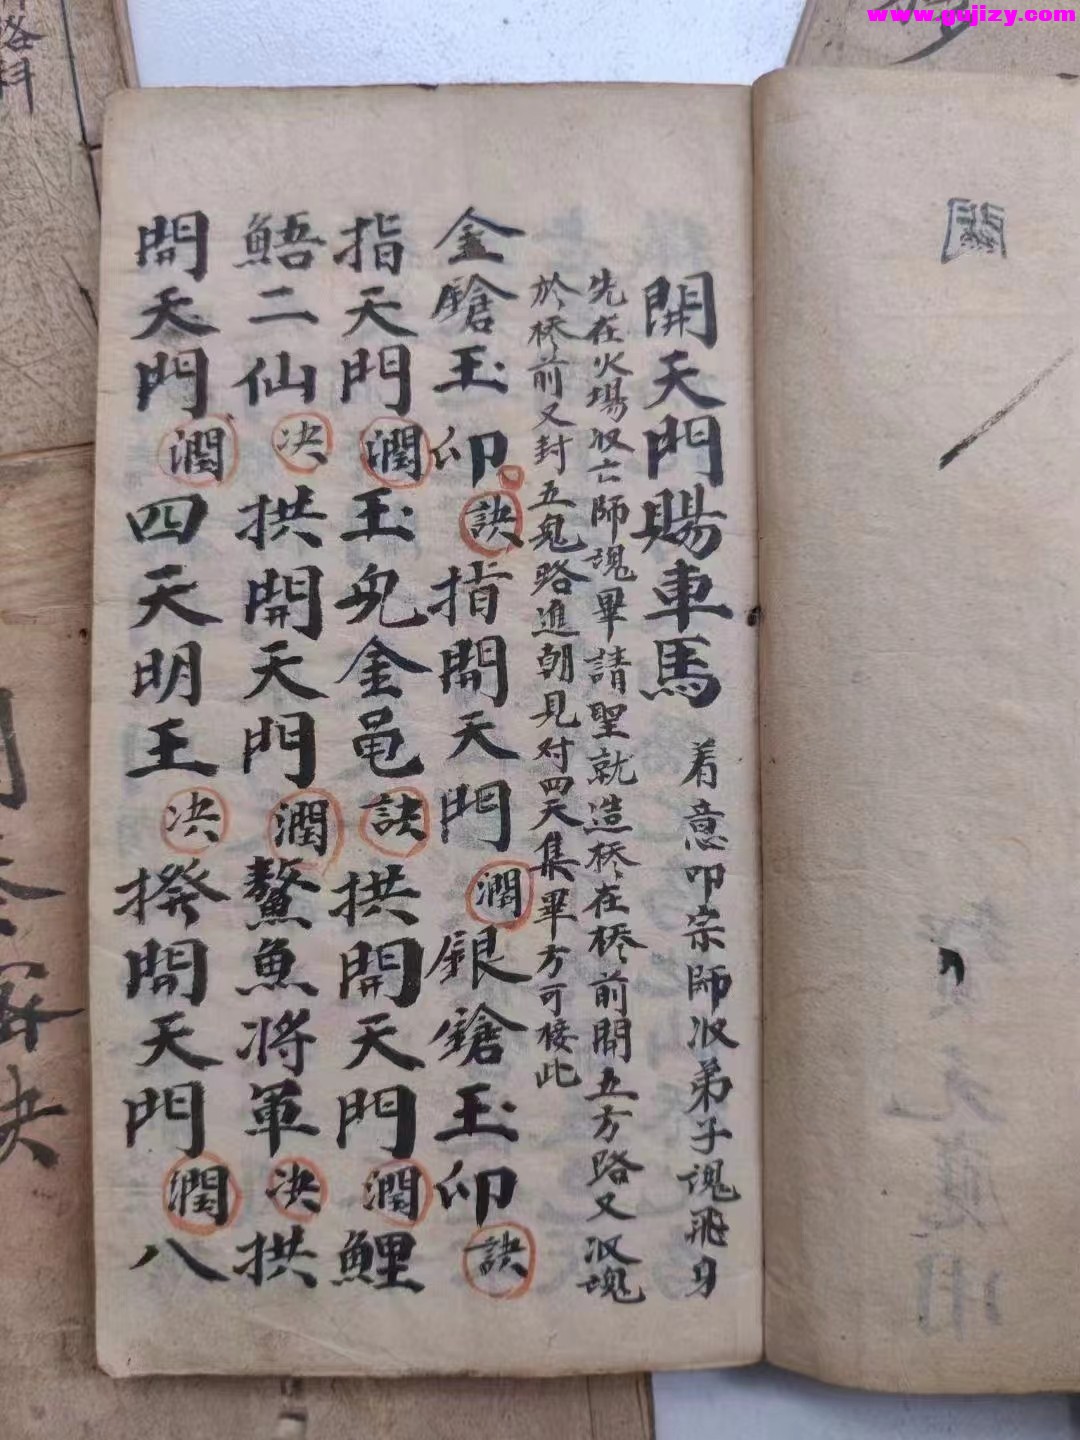 www.gujizy.com
開天門賜車馬 着意叩宗師收弟子魂飛身
先在火場收亡師魂畢請聖就造桥在桥前開五方路又收魂
於桥前又封五鬼路進朝見对四天集畢方可接此
金鎗玉印訣指開天門潤銀鎗玉印訣
指天門潤玉兔金黾訣拱開天門潤鯉
鯃二仙决拱開天門潤鰲魚將軍决拱
開天門潤四天明王决揆開天門潤八